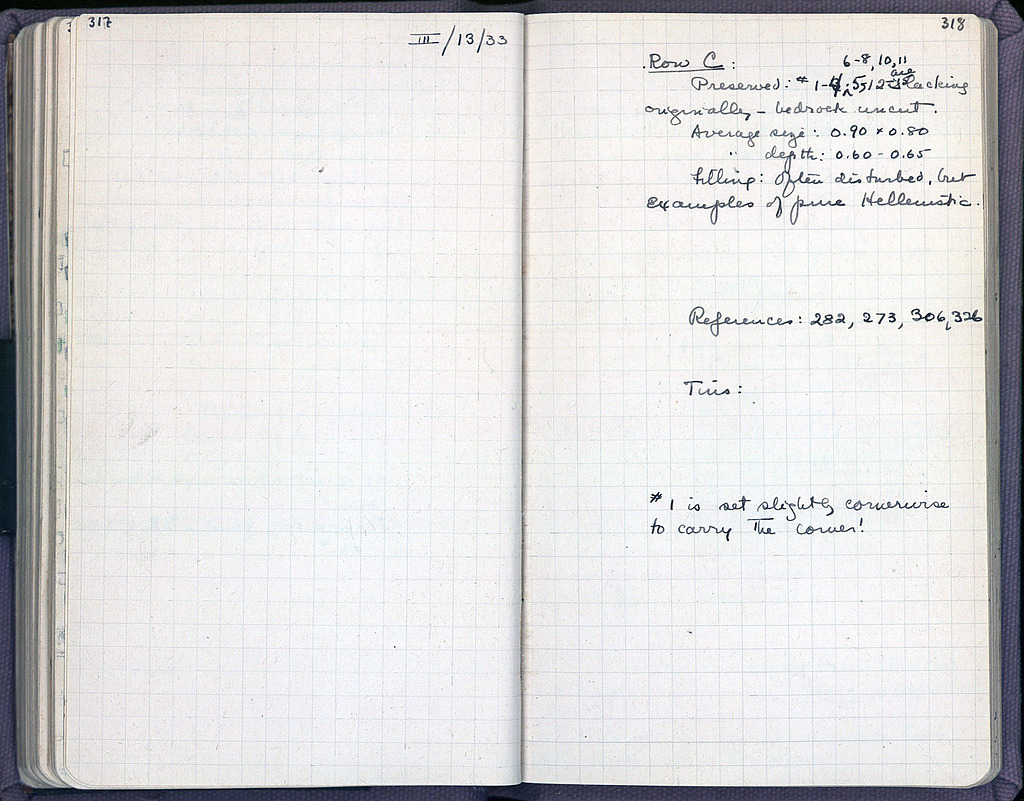 317
III/13/33
318
Row C:
6-8, 10, 11
are
Preserved: # 1-5, 12- lacking
originally - bedrock uncut.
Average size: 0.90 × 0.80
" depth: 0.60 - 0.65
Filling: often disturbed, but
examples of pure Hellenistic.
References: 282, 273, 306, 326
Tins:
# 1 is set slightly cornerwise
to carry the corner!